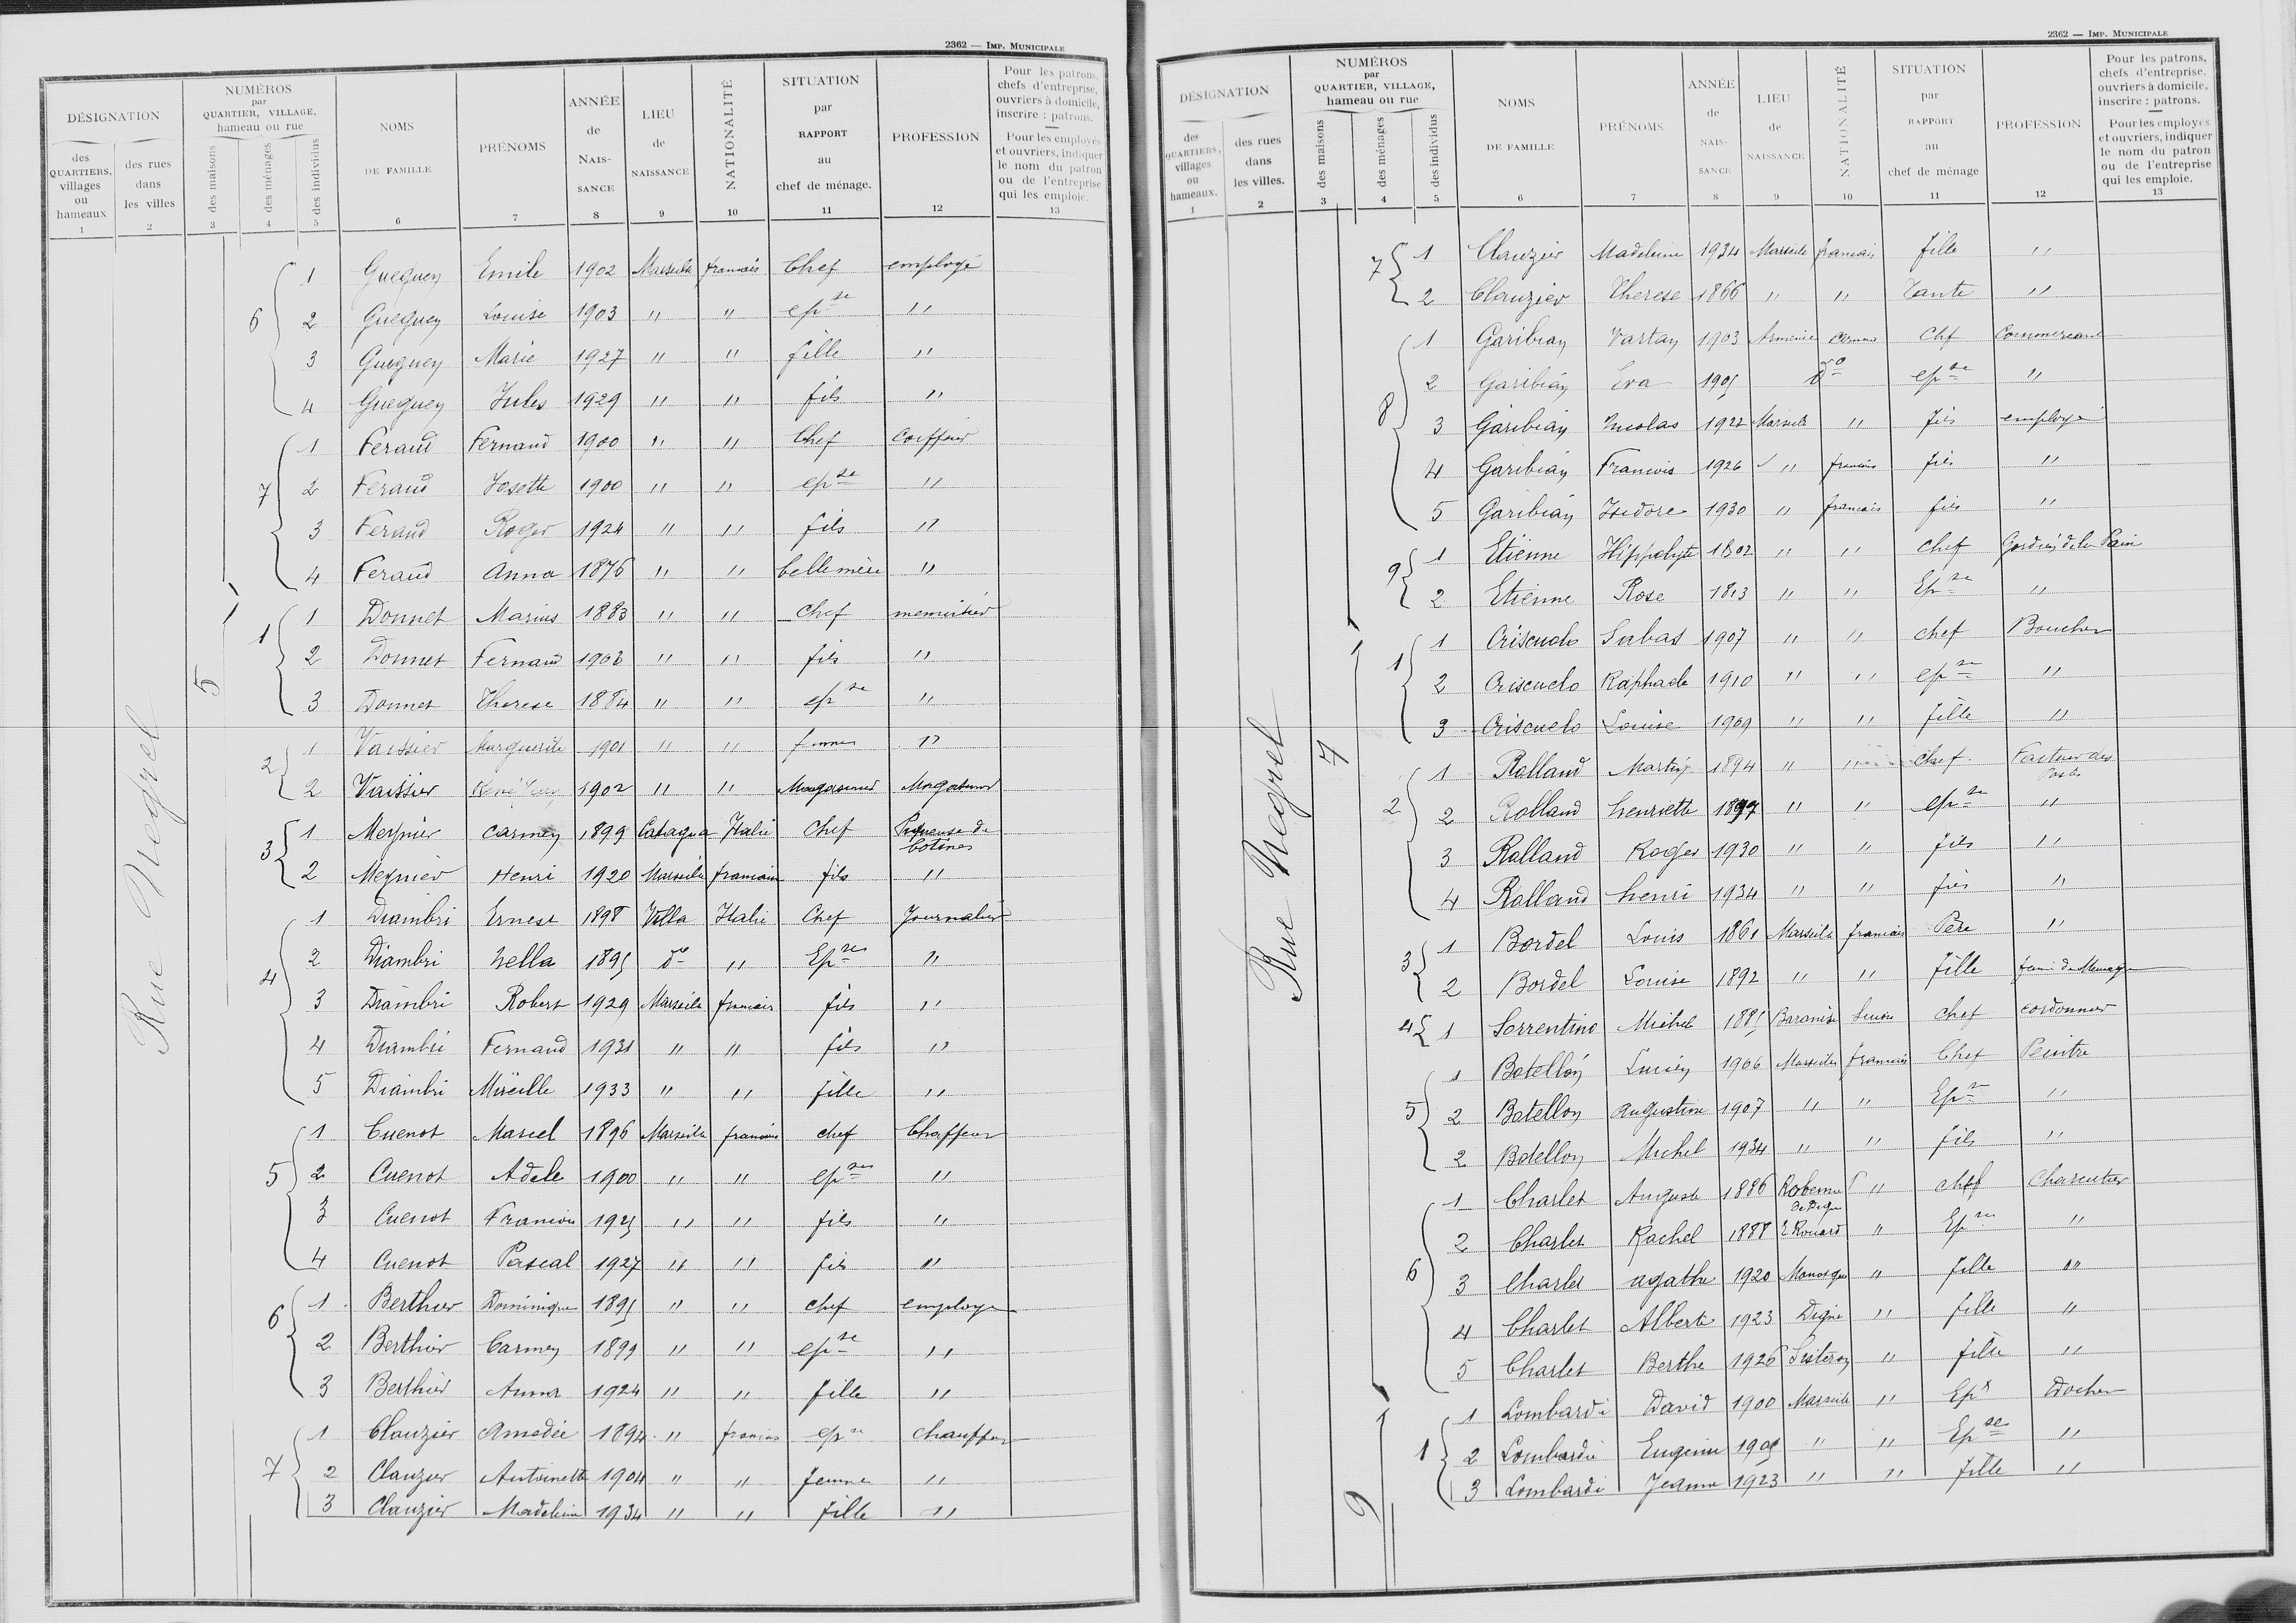 2362 — Imp. Municipale
DÉSIGNATION
des QUARTIERS, villages ou hameaux
1
des rues dans les villes
2
NUMÉROS par QUARTIER, VILLAGE, hameau ou rue
des maisons
3
des ménages
4
des individus
5
NOMS DE FAMILLE
6
PRÉNOMS
7
ANNÉE de NAIS-SANCE
8
LIEU de NAISSANCE
9
NATIONALITÉ
10
SITUATION par RAPPORT au chef de ménage.
11
PROFESSION
12
Pour les patrons, chefs d'entreprise, ouvriers à domicile, inscrire : patrons.
Pour les employés et ouvriers, indiquer le nom du patron ou de l'entreprise qui les emploie.
13
Rue Negrel
5
6 1 Gueguen Emile 1902 Marseille francais Chef employé
2 Gueguen Louise 1903 " " epse "
3 Gueguen Marie 1927 " " fille "
4 Gueguen Jules 1929 " " fils "
7 1 Feraud Fernand 1900 " " Chef Coiffeur
2 Feraud Josette 1900 " " epse "
3 Feraud Roger 1924 " " fils "
4 Feraud Anna 1876 " " belle mère "
1 1 Donnet Marius 1883 " " chef menuisier
2 Donnet Fernand 1908 " " fils "
3 Donnet Therese 1884 " " epse "
2 1 Vaissier Marguerite 1901 " " femme "
2 Vaissier 1902 " " Magasinier Magasinier
3 1 Meynier Carmen 1899 Italie Chef Piqueuse de botines
2 Meynier Henri 1920 Marseille francais fils "
4 1 Diambri Ernest 1898 Villa Italie Chef Journalier
2 Diambri Nella 1895 do " Epse "
3 Diambri Robert 1929 Marseille francais fils "
4 Diambri Fernand 1931 " " fils "
5 Diambri Mireille 1933 " " fille "
5 1 Cuenot Marcel 1896 Marseille francais chef Chaffeur
2 Cuenot Adele 1900 " " epse "
3 Cuenot Francois 1925 " " fils "
4 Cuenot Pascal 1927 " " fils "
6 1 Berthier Dominique 1895 " " chef employe
2 Berthier Carmen 1899 " " epse "
3 Berthier Anna 1924 " " fille "
7 1 Clauzier Amedée 1894 " francais epse chauffeur
2 Clauzier Antoinette 1904 " " femme "
3 Clauzier Madeleine 1934 " " fille "
2362 — Imp. Municipale
DÉSIGNATION
des QUARTIERS, villages ou hameaux.
1
des rues dans les villes.
2
NUMÉROS par QUARTIER, VILLAGE, hameau ou rue
des maisons
3
des ménages
4
des individus
5
NOMS DE FAMILLE
6
PRÉNOMS
7
ANNÉE de NAIS-SANCE
8
LIEU de NAISSANCE
9
NATIONALITÉ
10
SITUATION par RAPPORT au chef de ménage
11
PROFESSION
12
Pour les patrons, chefs d'entreprise, ouvriers à domicile, inscrire : patrons.
Pour les employés et ouvriers, indiquer le nom du patron ou de l'entreprise qui les emploie.
13
Rue Negrel
7 1 Clauzier Madeleine 1934 Marseille francais fille "
2 Clauzier Therese 1866 " " Tante "
8 1 Garibian Vartan 1903 Armenie Chf Commercant
2 Garibian Eva 1905 do epse "
3 Garibian Nicolas 1922 Marseille " fils employé
4 Garibian Francois 1926 " francais fils "
5 Garibian Isidore 1930 " francais fils "
9 1 Etienne Hippolyte " " chef
2 Etienne Rose " " Epse "
7
1 1 Criscuolo Sabas 1907 " " chef Boucher
2 Criscuolo Raphaele 1910 " " epse "
3 Criscuolo Louise 1909 " " fille "
2 1 Rolland Martin 1894 " " chef Facteur des Postes
2 Rolland henriette 1897 " " epse "
3 Rolland Roger 1930 " " fils "
4 Rolland henri 1934 " " fils "
3 1 Bordel Louis 1861 Marseille francais Père "
2 Bordel Louise 1892 " " fille
4 1 Sorrentino Michel 1885 chef cordonnier
5 1 Botellon Lucien 1906 Marseille francais Chef Peintre
2 Botellon Augustine 1907 " " Epse "
2 Botellon Michel 1934 " " fils "
6 1 Charlet Auguste 1886 " chef Charcutier
2 Charlet Rachel 1888 " Epse "
3 Charlet agathe 1920 Manosque " fille "
4 Charlet Alberte 1923 Digne " fille "
5 Charlet Berthe 1926 Sisteron " fille "
9
1 1 Lombardi David 1900 Marseille " Epx Docker
2 Lombardi Eugenie 1905 " " Epse "
3 Lombardi Jeanne 1923 " " fille "